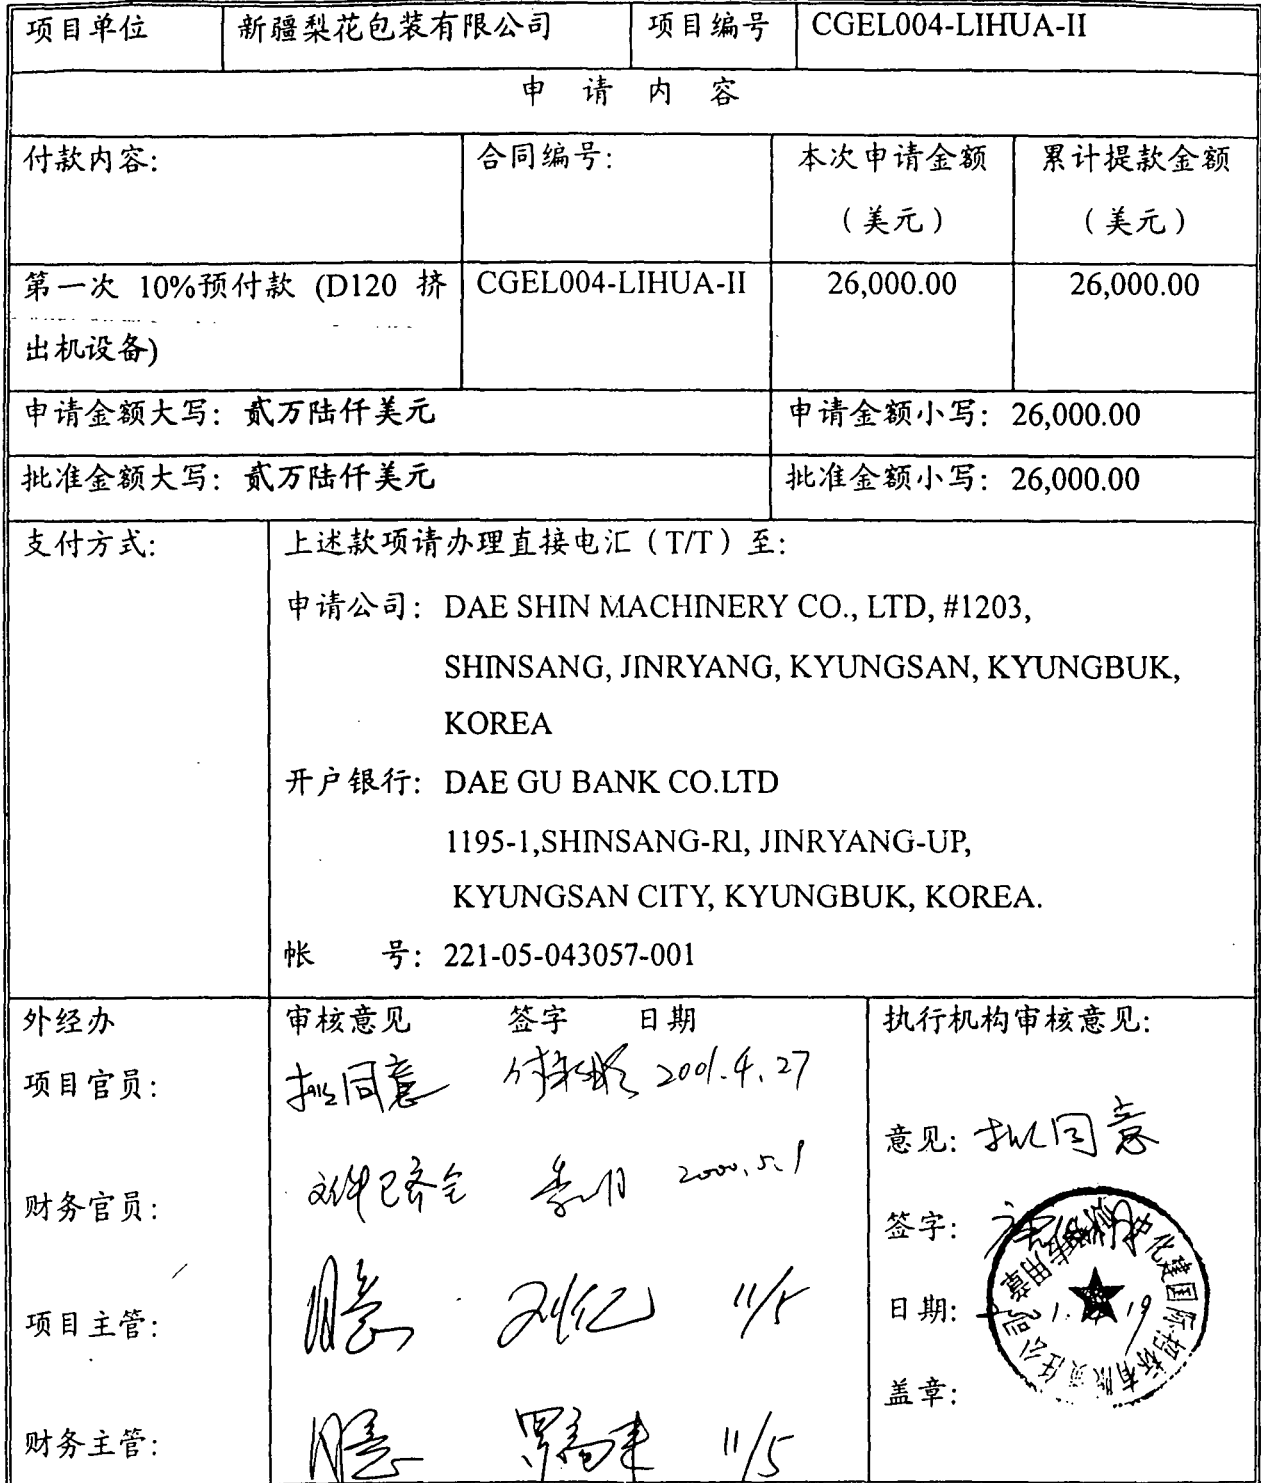 项目单位 新疆梨花包装有限公司 项目编号 CGEL004-LIHUA-II
申 请 内 容
付款内容: 合同编号: 本次申请金额 累计提款金额
（美元） （美元）
第一次 10%预付款 (D120 挤 CGEL004-LIHUA-II 26,000.00 26,000.00
出机设备)
申请金额大写: 贰万陆仟美元 申请金额小写: 26,000.00
批准金额大写: 贰万陆仟美元 批准金额小写: 26,000.00
支付方式: 上述款项请办理直接电汇（T/T）至:
申请公司: DAE SHIN MACHINERY CO., LTD, #1203,
SHINSANG, JINRYANG, KYUNGSAN, KYUNGBUK,
KOREA
开户银行: DAE GU BANK CO.LTD
1195-1,SHINSANG-RI, JINRYANG-UP,
KYUNGSAN CITY, KYUNGBUK, KOREA.
帐 号: 221-05-043057-001
外经办 审核意见 签字 日期 执行机构审核意见:
项目官员: 拟同意 2001.4.27
意见: 拟同意
财务官员: 文件已齐全 2000.5.1
签字:
项目主管: 同意 刘亿 11/5
日期:
盖章:
财务主管: 同意 11/5
中化建国际招标有限责任公司